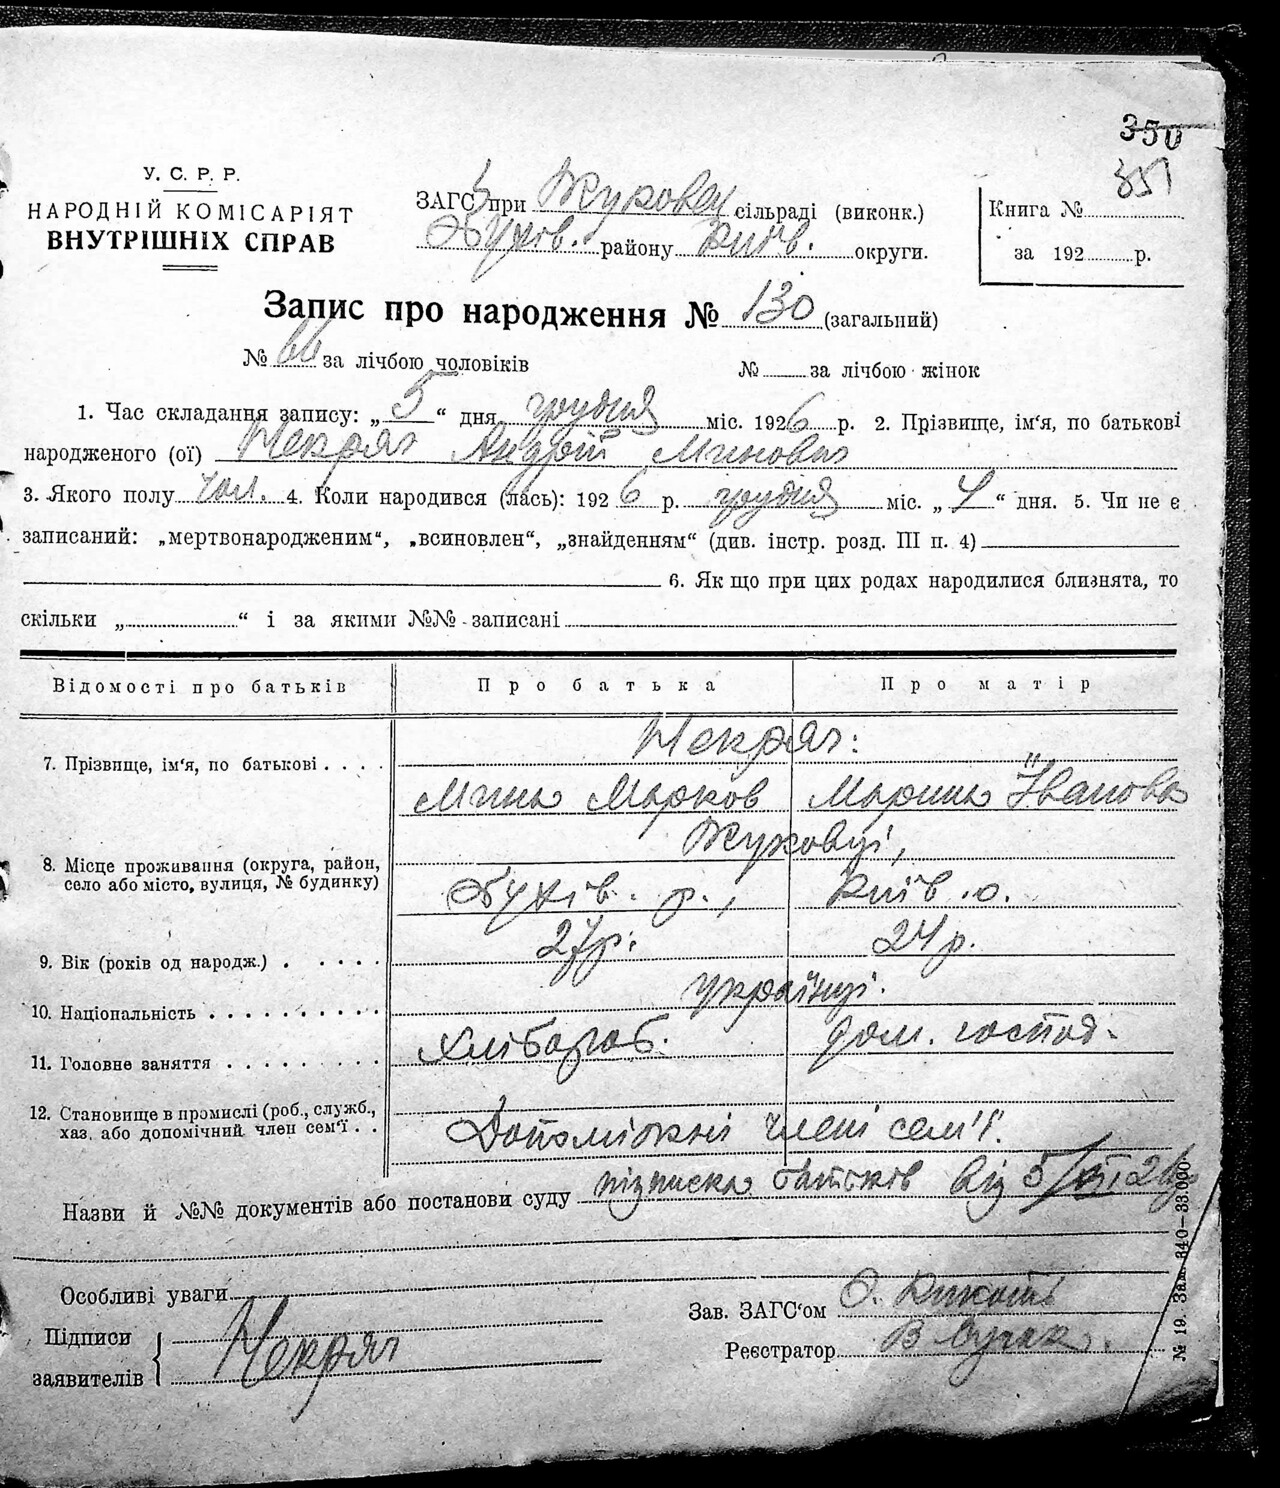 350
351
У. С. Р. Р.
НАРОДНІЙ КОМІСАРІЯТ
ВНУТРІШНІХ СПРАВ
ЗАГС при Жуковец сільраді (виконк.)
Обухів. району Київ. округи.
Книга №
за 192 р.
Запис про народження № 130 (загальний)
№ 66 за лічбою чоловіків № за лічбою жінок
1. Час складання запису: „5“ дня грудня міс. 1926 р. 2. Прізвище, ім'я, по батькові
народженого (ої) Некряч Андрій Минович
3. Якого полу чол. 4. Коли народився (лась): 1926 р. грудня міс. „4“ дня. 5. Чи не є
записаний: „мертвонародженим“, „всиновлен“, „знайденням“ (див. інстр. розд. III п. 4)
6. Як що при цих родах народилися близнята, то
скільки „ “ і за якими №№ записані
Відомості про батьків Про батька Про матір
Некряч:
7. Прізвище, ім'я, по батькові . . . .
Мина Марков Марина Іванова
Жуковці,
8. Місце проживання (округа, район,
село або місто, вулиця, № будинку)
Обухів. р., Київ. о.
27 р. 24 р.
9. Вік (років од народж.) . . . . .
українці.
10. Національність . . . . . . . . . .
Хлібороб. дом. господ.
11. Головне заняття . . . . . . . . .
12. Становище в промислі (роб., служб.,
хаз. або допомічний член сем'ї . .
Допоміжні члени сем'ї.
Назви й №№ документів або постанови суду підписка батьків від 5/XII 26 р.
Особливі уваги
Зав. ЗАГС'ом О.
Підписи
заявителів
Некряч
Реєстратор В
№ 19. Зам. 340—33.000